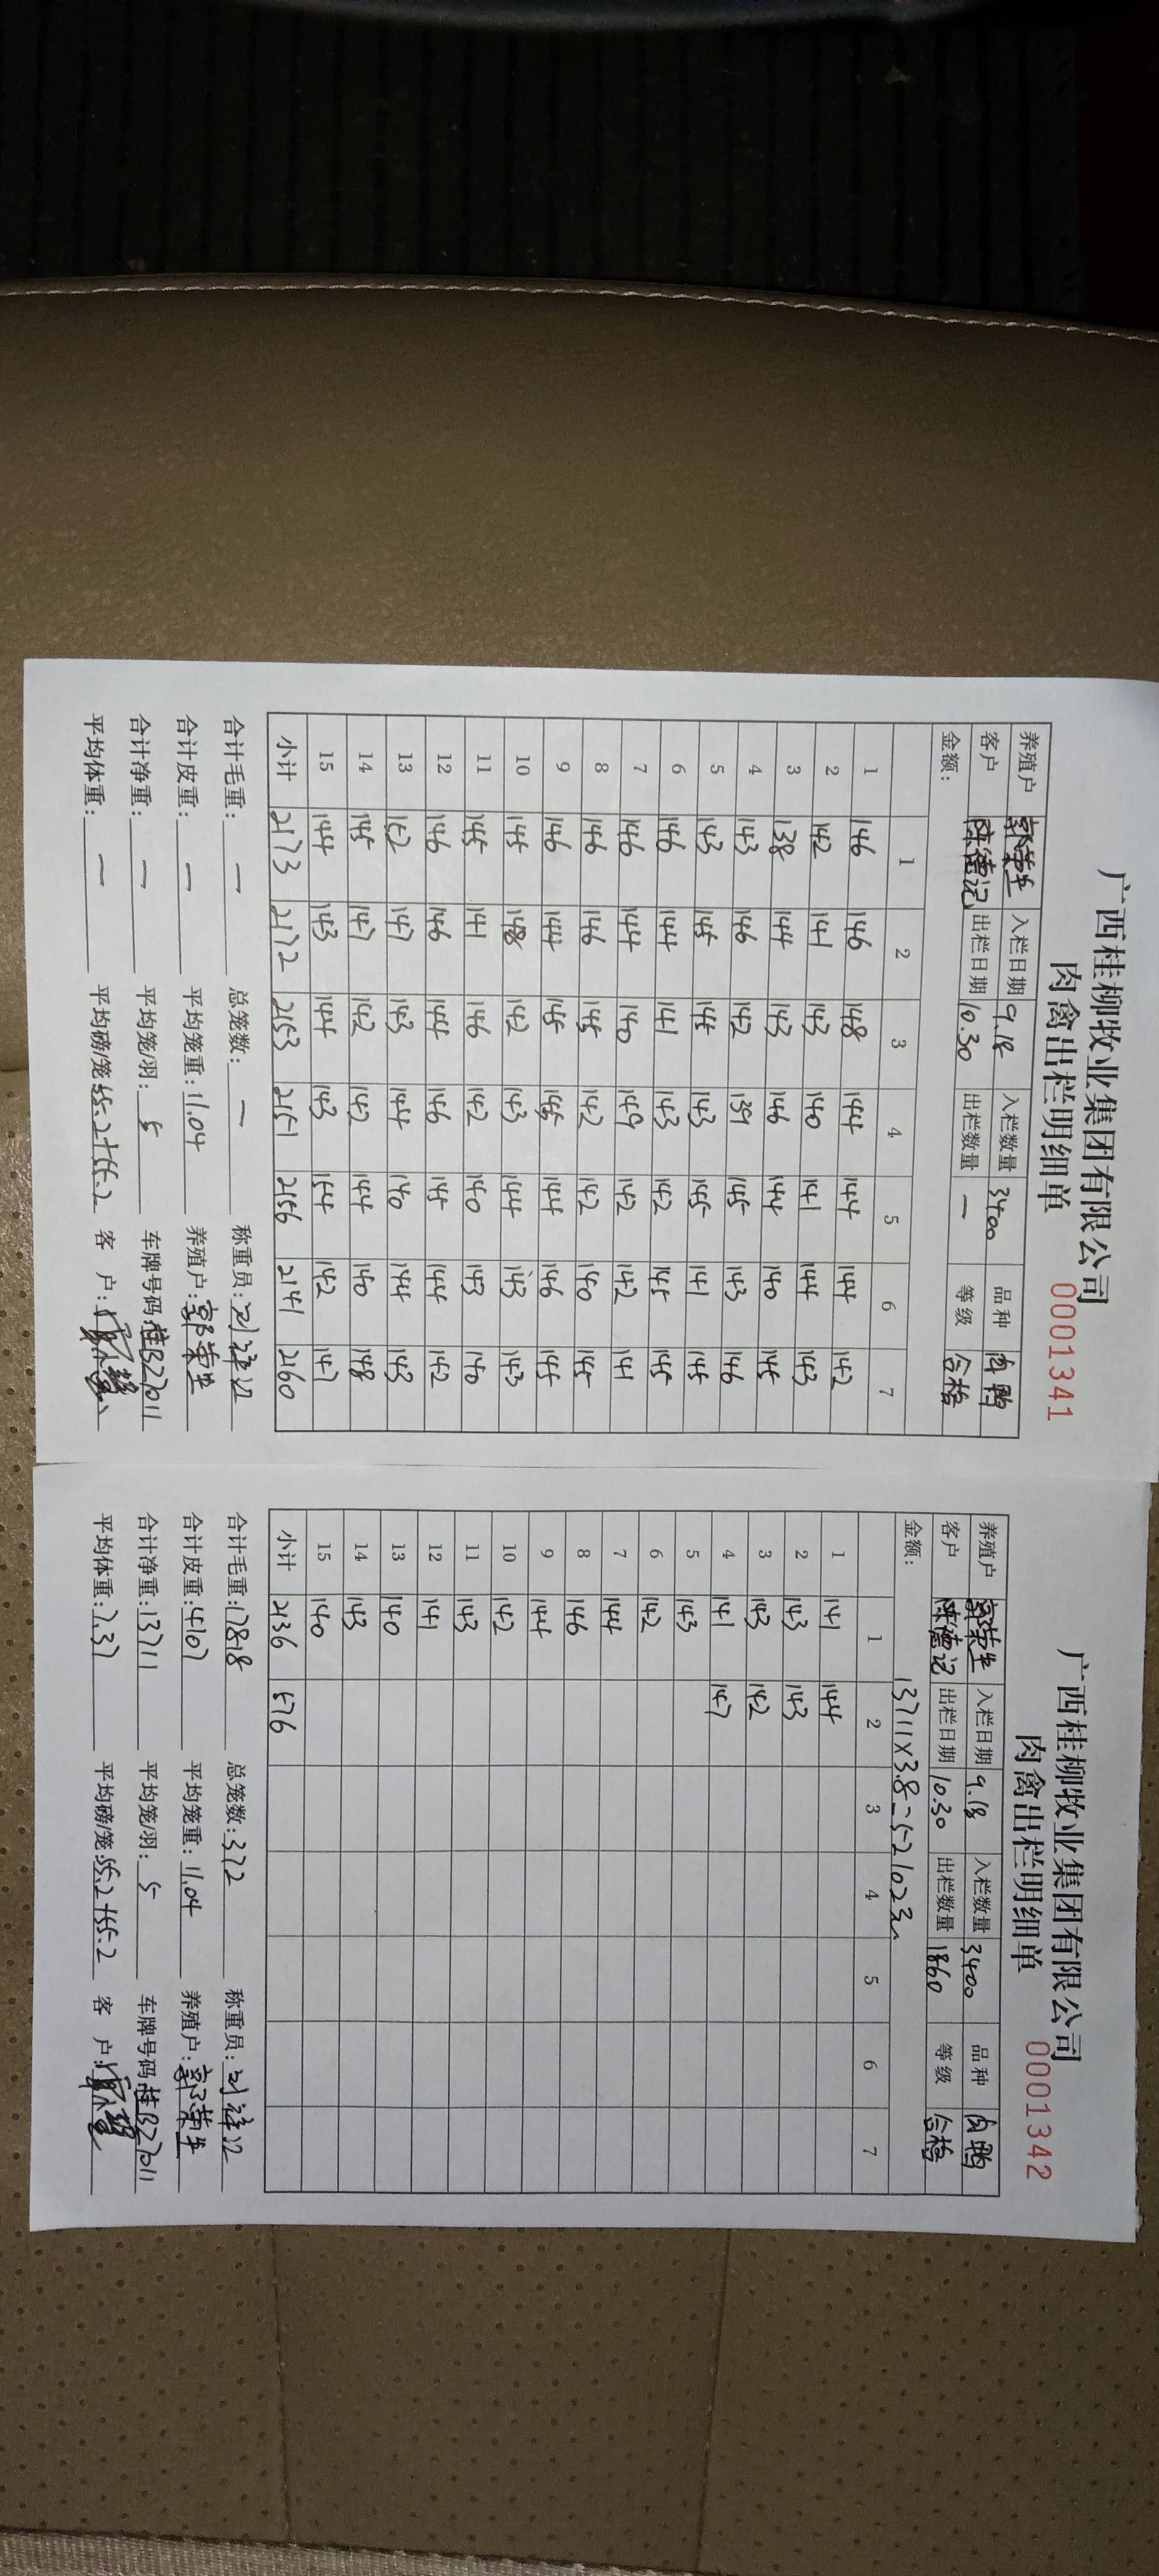 广西桂柳牧业集团有限公司
肉禽出栏明细单 0001341
养殖户 郭荣生 入栏日期 9.18 入栏数量 3400 品种 肉鸭
客户 陈德记 出栏日期 10.30 出栏数量 — 等级 合格
金额:
1 2 3 4 5 6 7
1 146 146 148 144 144 144 142
2 142 141 143 140 141 144 143
3 138 144 143 146 144 140 145
4 143 146 142 139 145 143 146
5 143 145 145 143 145 141 145
6 146 144 141 143 142 145 145
7 146 144 140 149 142 142 141
8 146 146 145 142 142 140 145
9 146 144 145 145 144 146 145
10 145 148 142 143 144 143 143
11 145 141 146 142 140 143 140
12 146 146 144 146 145 144 142
13 152 147 143 144 140 144 143
14 145 147 142 142 144 140 148
15 144 143 144 143 154 142 147
小计 2173 2172 2153 2151 2156 2141 2160
合计毛重: — 总笼数: — 称重员:
合计皮重: — 平均笼重: 11.04 养殖户: 郭荣生
合计净重: — 平均笼/羽: 5 车牌号码: 桂BZ7011
平均体重: — 平均磅/笼: 55.2+55.2 客 户:
广西桂柳牧业集团有限公司
肉禽出栏明细单 0001342
养殖户 郭荣生 入栏日期 9.18 入栏数量 3400 品种 肉鸭
客户 陈德记 出栏日期 10.30 出栏数量 1860 等级 合格
金额: 13711×3.8=52102元
1 2 3 4 5 6 7
1 141 144
2 143 143
3 143 142
4 141 147
5 143
6 142
7 144
8 146
9 144
10 142
11 143
12 141
13 140
14 143
15 140
小计 2136 576
合计毛重: 17818 总笼数: 372 称重员:
合计皮重: 4107 平均笼重: 11.04 养殖户: 郭荣生
合计净重: 13711 平均笼/羽: 5 车牌号码: 桂BZ7011
平均体重: 7.37 平均磅/笼: 55.2+55.2 客 户: